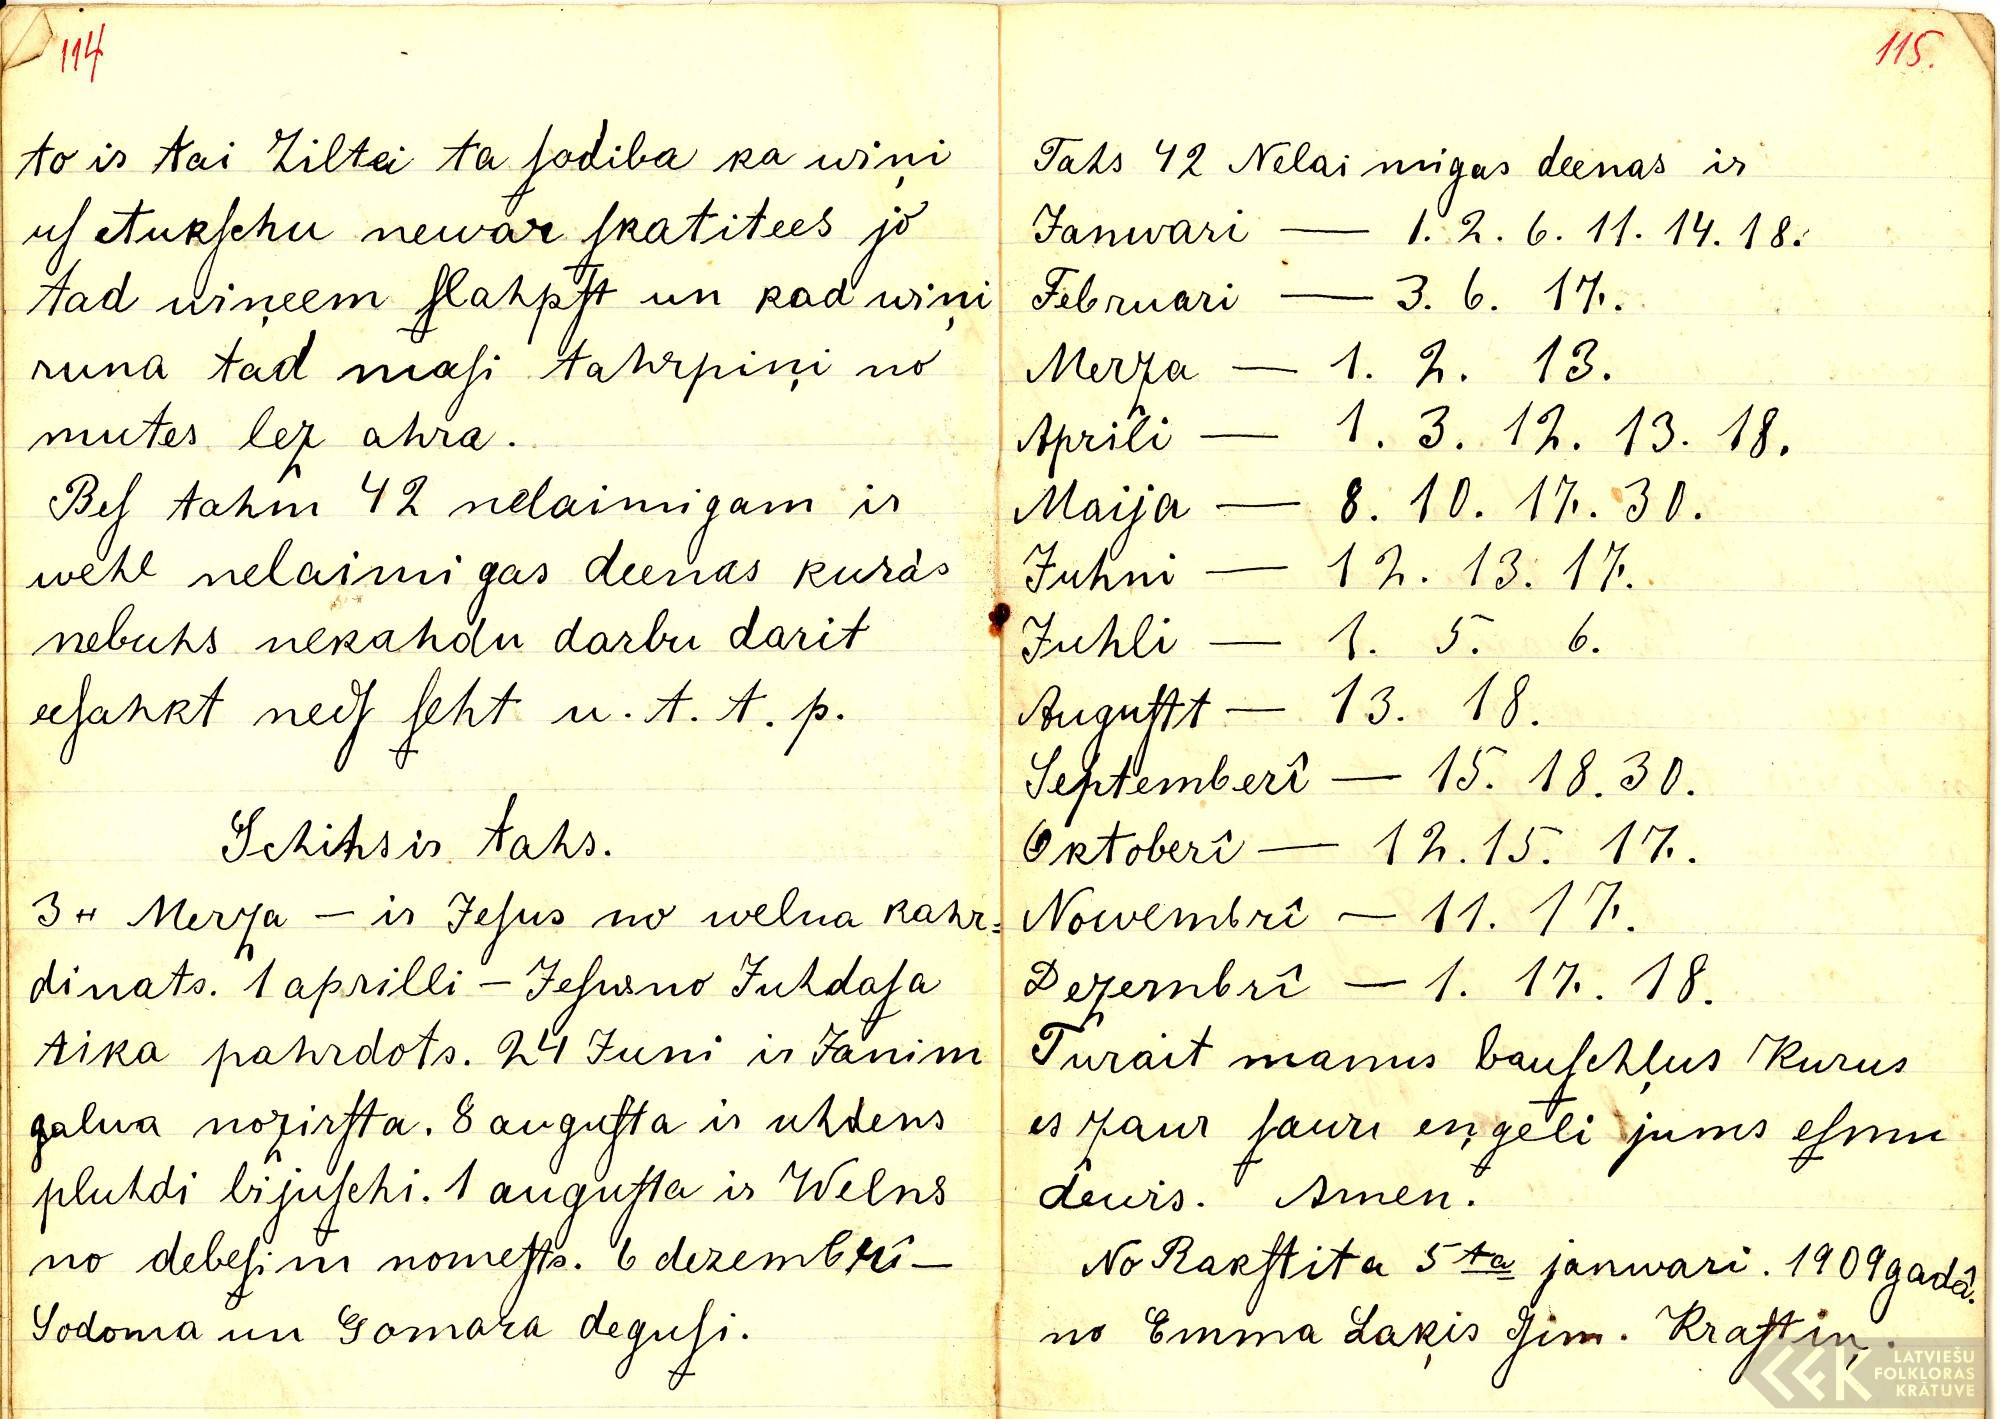 114
to is tai Ziltei ta ſodiba ka wiņi
uſ Aukſchu newar ſkatitees jo
tad wiņeem ſlahpſt un kad wiņi
runa tad maſi tahrpiņi no
mutes lez ahra.
Beſ tahm 42 nelaimigam ir
wehl nelaimigas deenas kuràs
nebuhs nekahdu darbu darit
eeſahkt nedſ ſeht u. t. t. p.
Schihs ir tahs.
3 Merza – ir Jeſus no welna kahr=
dinats. 1 aprilli – Jeſus no Juhdaſa
tika pahrdots. 24 Juni ir Janim
galwa nozirſta. 8 auguſta ir uhdens
pluhdi bijuſchi. 1 auguſta ir Welns
no debeſim nomeſts. 6 dezembrî –
Sodoma un Gomara deguſi.
115.
Tahs 42 Nelaimigas deenas ir
Janwari — 1. 2. 6. 11. 14. 18.
Februari — 3. 6. 17.
Merza — 1. 2. 13.
Aprîli — 1. 3. 12. 13. 18.
Maija — 8. 10. 17. 30.
Juhni — 12. 13. 17.
Juhli — 1. 5. 6.
Auguſtt — 13. 18.
Septemberî — 15. 18. 30.
Oktoberî — 12. 15. 17.
Nowembrî — 11. 17.
Dezembrî — 1. 17. 18.
Turait manus bauſchļus Kurus
es zaur ſauu eņgeli jums eſmu
dewis. Amen.
No Rakſtita 5 ta janwari. 1909 gadâ.
no Emma Laķis dſim. Kraſtiņ.
LATVIEŠU
FOLKLORAS
KRĀTUVE